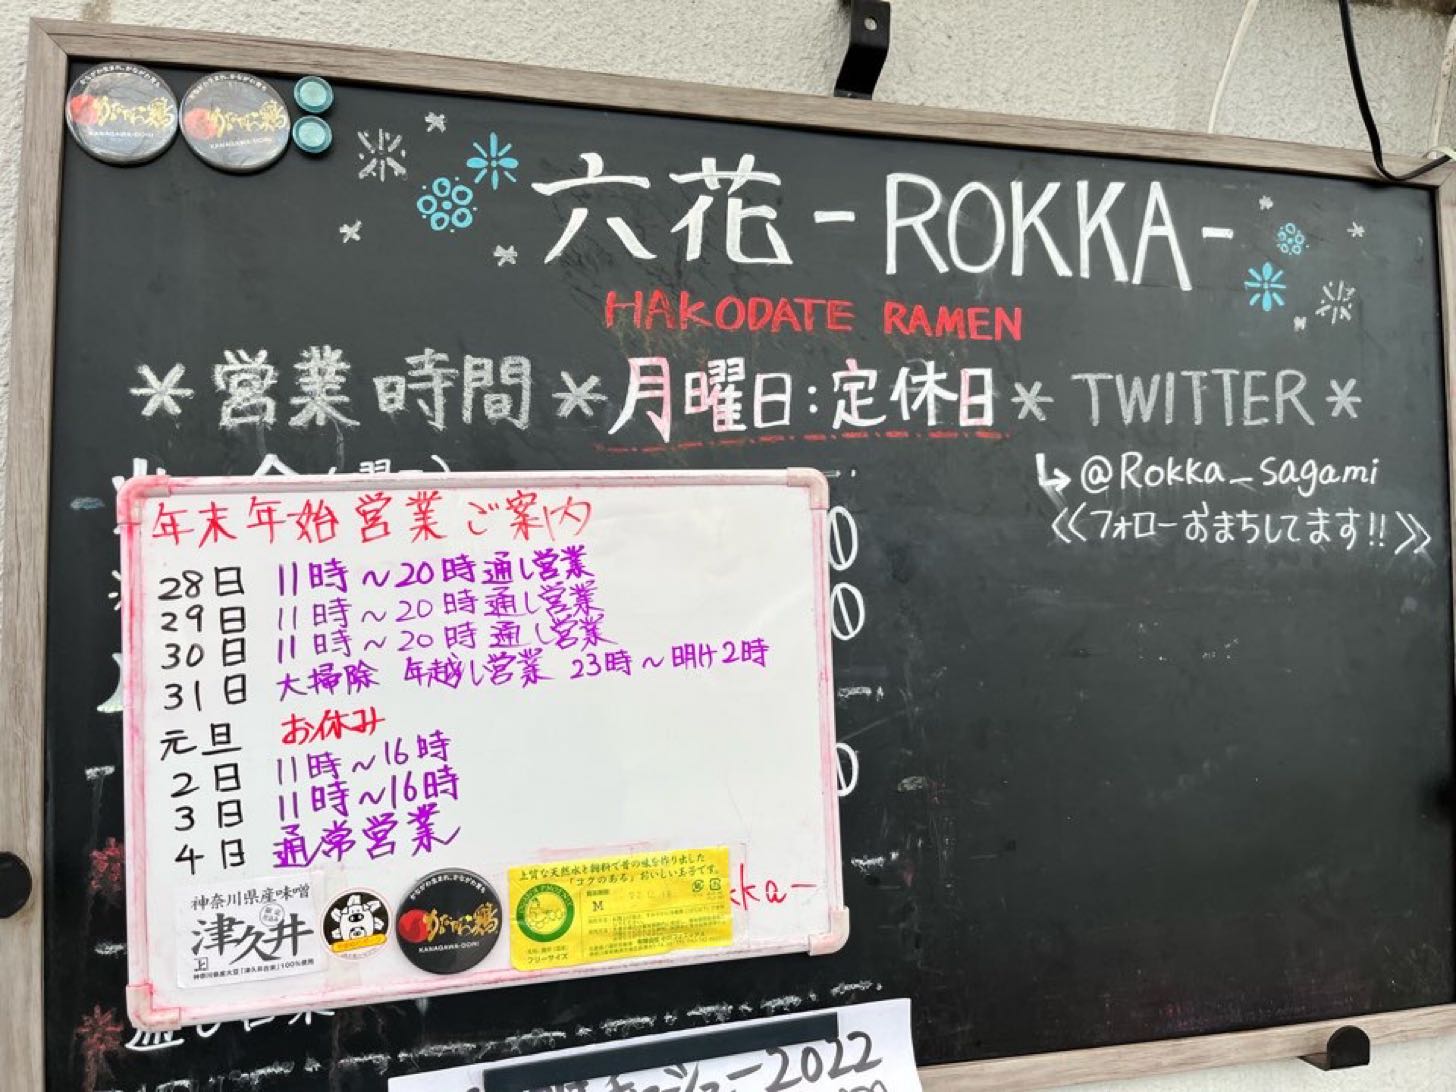 六花 -ROKKA-
HAKODATE RAMEN
*営業時間*月曜日:定休日*TWITTER*
↳@Rokka_sagami
≪フォローおまちしてます!!≫
年末年始営業ご案内
28日 11時~20時通し営業
29日 11時~20時通し営業
30日 11時~20時通し営業
31日 大掃除 年越し営業 23時~明け2時
元旦 お休み
2日 11時~16時
3日 11時~16時
4日 通常営業
神奈川県産味噌
津久井
神奈川県産大豆「津久井在来」100%使用
かながわ鶏
KANAGAWA-DORI
上質な天然水と飼料で昔の味を作り出した
「コクのある」おいしい玉子です。
M
フリーサイズ
kka-
かながわ鶏
KANAGAWA-DORI
かながわ鶏
KANAGAWA-DORI
2022